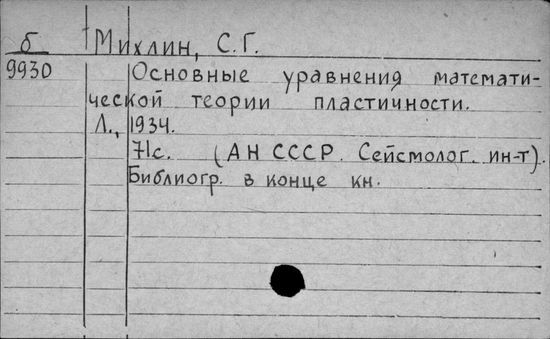 б Михлин, С. Г.
9930 Основные уравнения математи-
ческой теории пластичности.
Л., 1934.
71с. (АН СССР. Сейсмолог. ин-т).
Библиогр. в конце кн.